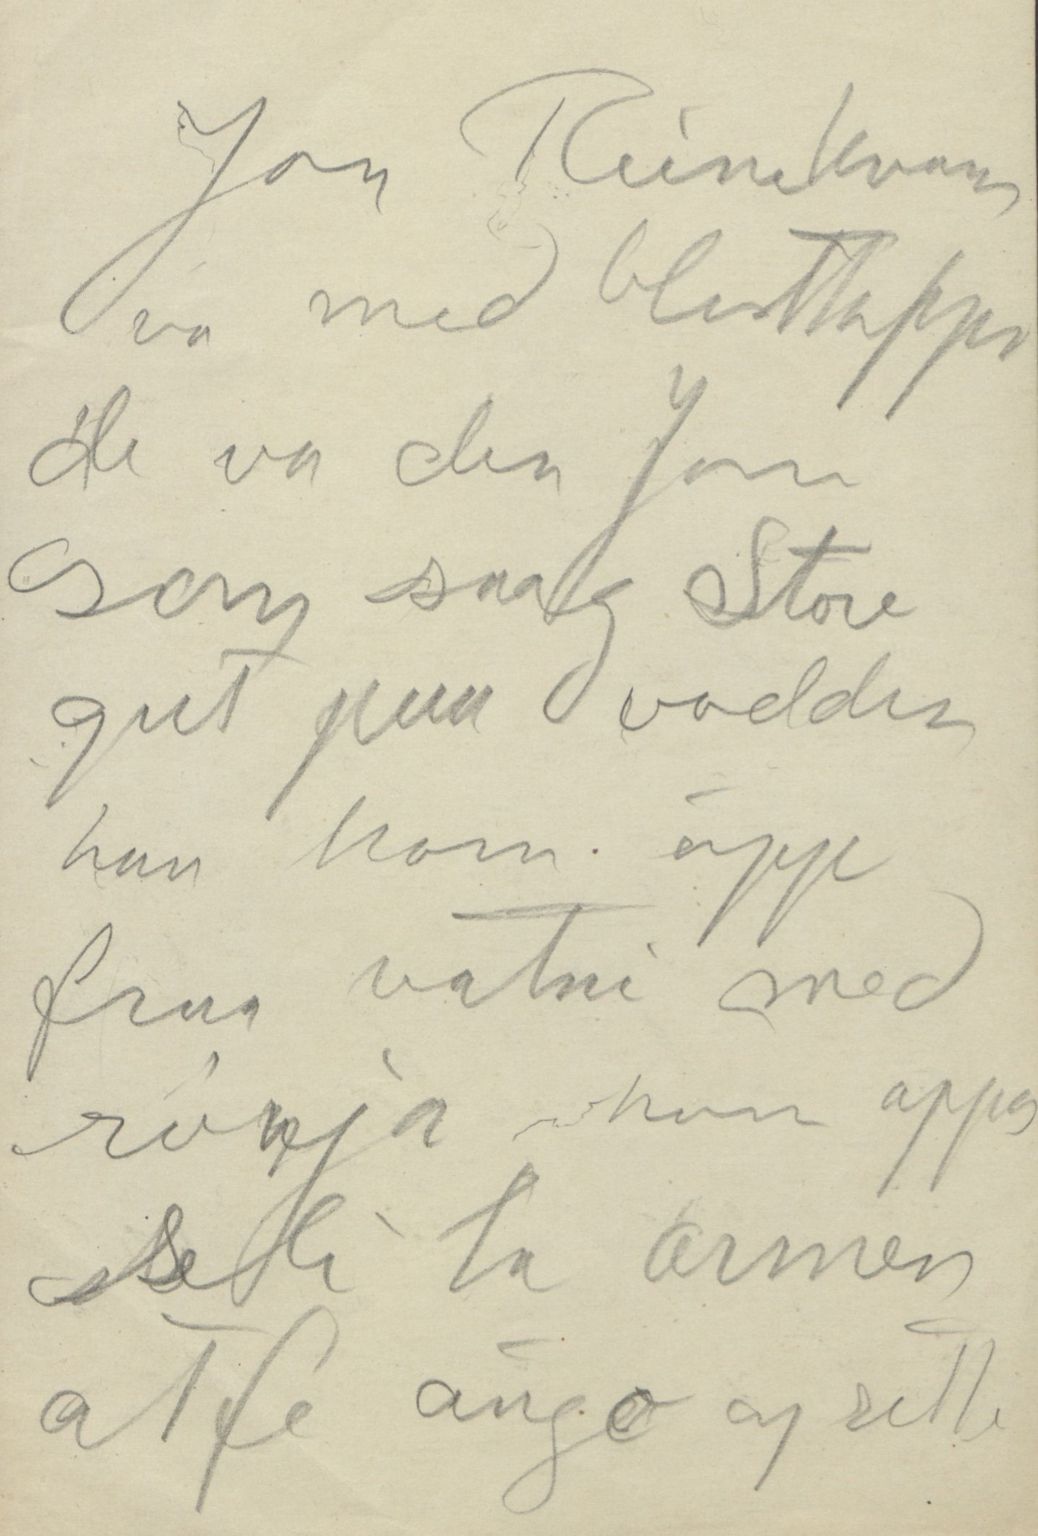 Jon Reinkvam
va med blesttapper
de va den Jonn
som snag Store
gut paa vadden
han kom. åpp
fraa vatni med
rónja han appa
seli ta armen
atfe ango ay rette